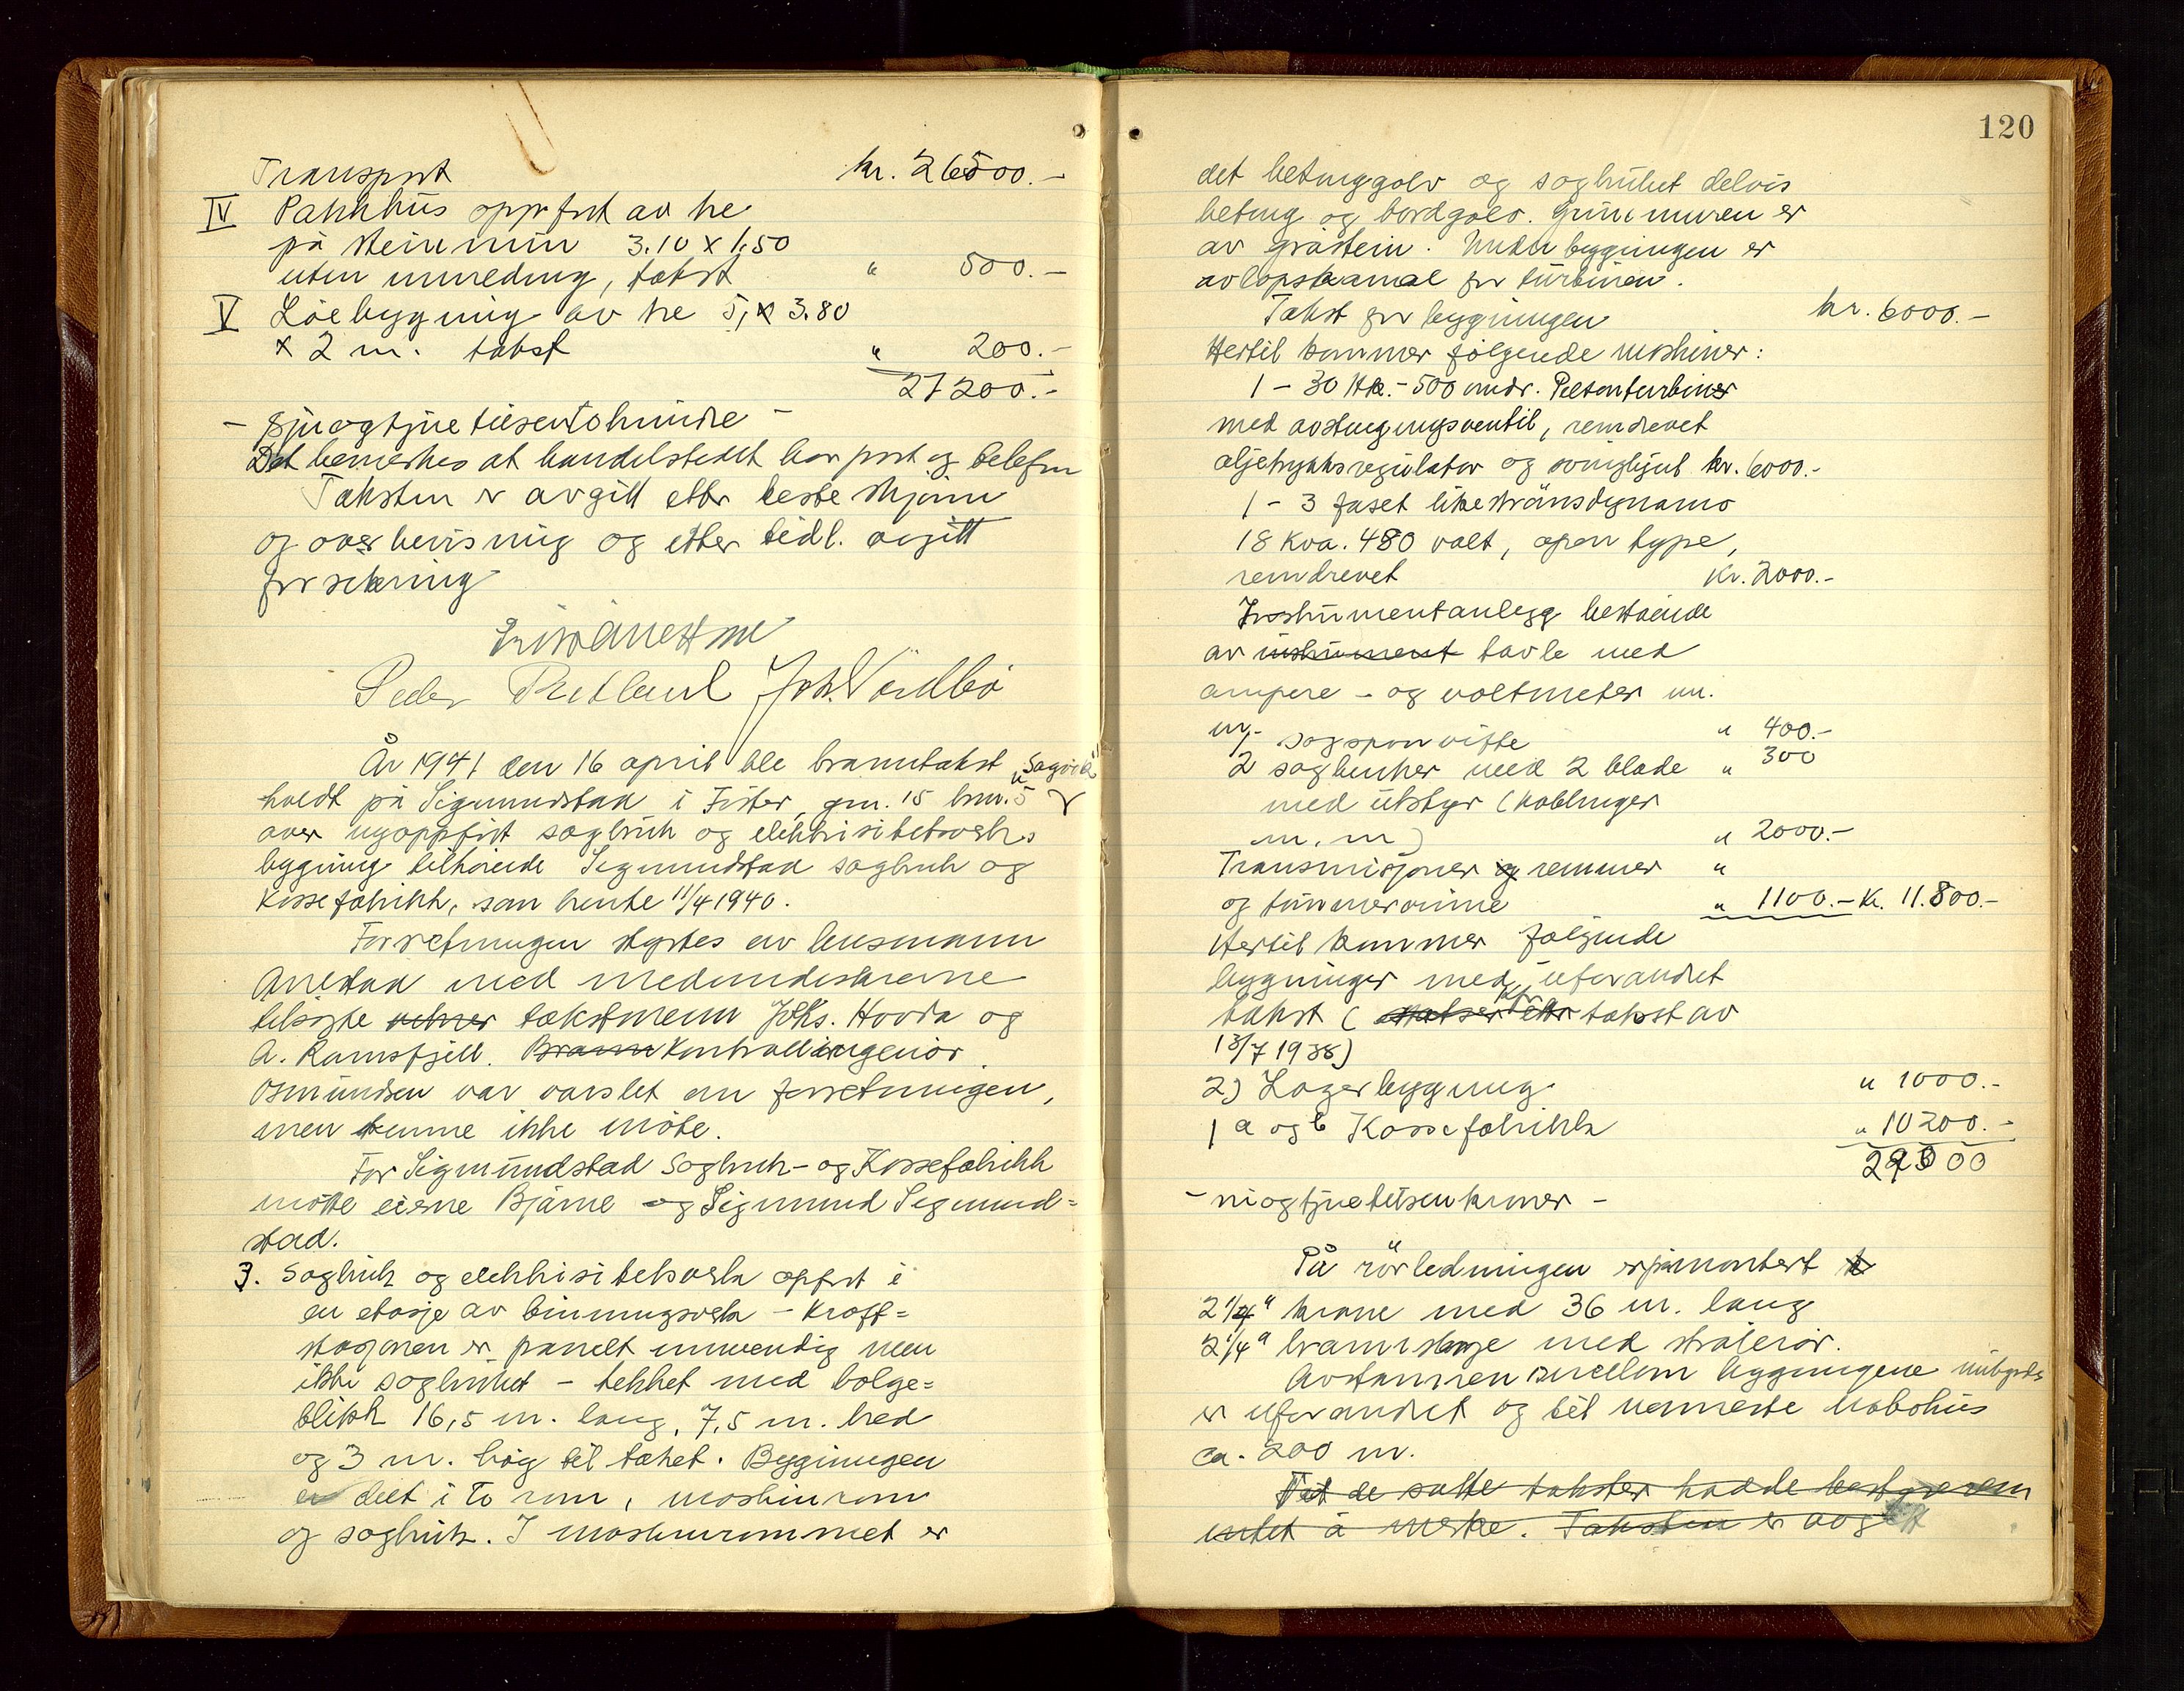 Transport kr. 26500.-
IV Pakkhus oppført av tre
på steinmur 3.10 x 1,50
uten innreding, takst " 500.-
V Løebygning av tre 5,x 3.80
x 2 m. takst " 200.-
27200.-
- sjuogtjuetusentohundre -
Det bemerkes at handelstedet har post og telefon
Taksten er avgitt etter beste skjønn
og overbevisning og etter tidl. avgitt
forsikring
Peder Joh.
År 1941 den 16 april ble branntakst "Sagvik"
holdt på Sigmundstad i Fister, gnr. 15 bnr. 5
over nyoppført sagbruk og elektrisitetsverks
bygning tilhørende Sigmundstad sagbruk og
Kassefabrikk, som brente 11/4 1940.
Forretningen styrtes av lensmann
Anestad med meddundeskrevne
tilsagte takstmenn Johs. Hovda og
A. Ramsfjell. Brann Kontrollingeniør
Osmundsen var varslet om forretningen,
men kunne ikke møte.
For Sigmundstad Sagbruk- og Kassefabrikk
møtte eierne Bjarne og Sigmund Sigmund=
stad.
3. Sagbruk og elektrisitetsverk oppført i
en etasje av bindingsverk - Kraft=
stasjonen er panelt innvendig men
ikke sagbruket - tekket med bølge=
blikk 16,5 m. lang, 7,5 m. bred
og 3 m. høg til taket. Bygningen
er delt i to rom, maskinrom
og sagbruk. I maskinrommet er
120
det betonggolv og sagbruket delvis
betong og bordgolv. Grunnmuren er
av gråstein. Under bygningen er
avløpskanal for turbinen.
Takst for bygningen kr. 6000.-
Hertil kommer følgende maskiner:
1 - 30 Hk.- 500 omdr. Peltonturbiner
med avstengingsventil, remdrevet
oljetrykksregulator og svinghjul kr. 6000.-
1 - 3 faset likestrømsdynamo
18 Kva. 480 volt, open type,
remdrevet Kr. 2000.-
Instrumentanlegg bestående
av instrument tavle med
ampere - og voltmeter m.
m. " 400.-
sagsponvifte " 300
2 sagbenker med 2 blade
med utstyr (koblinger
m. m) " 2000.-
Transmisjoner og remmer "
og tømmervinne " 1100.- Kr. 11.800.-
Hertil kommer følgende
bygninger med uforandret
takst ( kfr takst av
13/7 1938)
2) Lagerbygning " 1000.-
1 a og b Kassefabrikk " 10200.-
29000
- niogtjuetusen kroner -
På rørledningen er påmontert
2 1/4" krane med 36 m. lang
2 1/4" brannslange med strålerør.
Avstannen mellom bygningene innbyrdes
er uforandret og til nærmeste nabohus
ca. 200 m.
Ved de satte takster hadde bestyreren
intet å merke. Taksten er avgitt